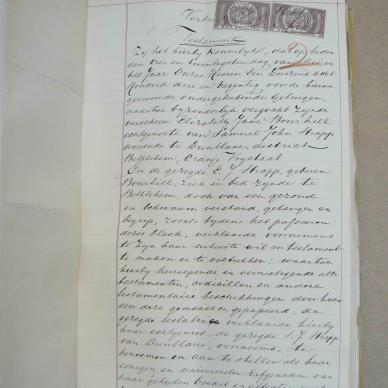 Testament
Zij het hierby Kennelyk, dat op heden
den vier en twintigsten dag van
het Jaar Onzes Heeren Een Duizend acht
Honderd drie en negentig voor de
genoemde ondergetekende getuigen,
daartoe byzonderlyk verzocht zynde,
verscheen Elizabeth Jane Bourhill
echtgenoote van Samuel John Strapp
woonende te Dunblane, district
Bethlehem, Oranje Vrystaat
En de gezegde E. J. Strapp, geboren
Bourhill, ziek in bed zynde te
Bethlehem, doch van een gezond
en bekwaam verstand, geheugen en
begrip, zooals tydens het passeeren
dezes bleek, verklaarde voornemens
te zyn haar uiterste wil en testament
te maken en te voltrekken; waartoe
hierby herroepende en vernietigende alle
testamenten, codicillen en andere
testamentaire beschikkingen door haar
voor deze gemaakt of gepasseerd, de
gezegde testatrice verklaarde hierby
haar echtgenoot, de gezegde S. J. Strapp
van Dunblane, voornoemd, te
benoemen en aan te stellen als haar
eenigen en universeelen Erfgenaam van
haar geheelen boedel en